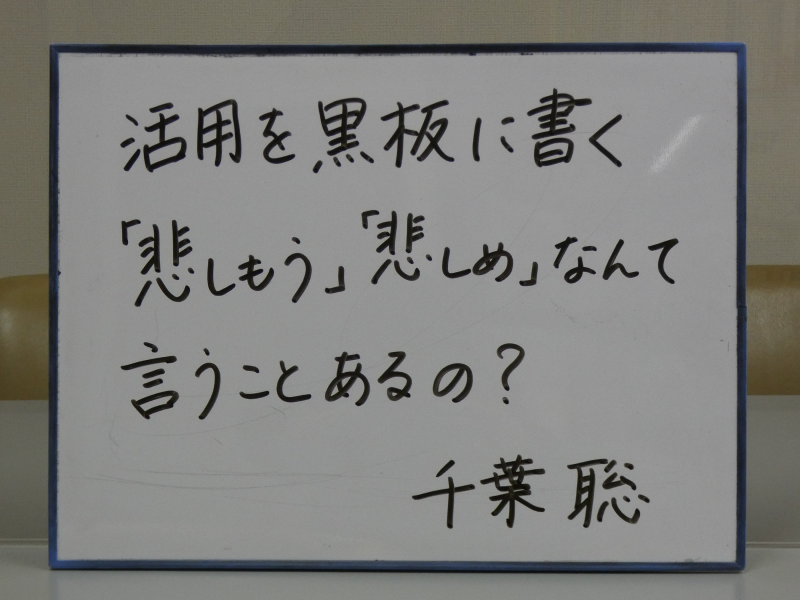 活用を黒板に書く
「悲しもう」「悲しめ」なんて
言うことあるの？
千葉聡